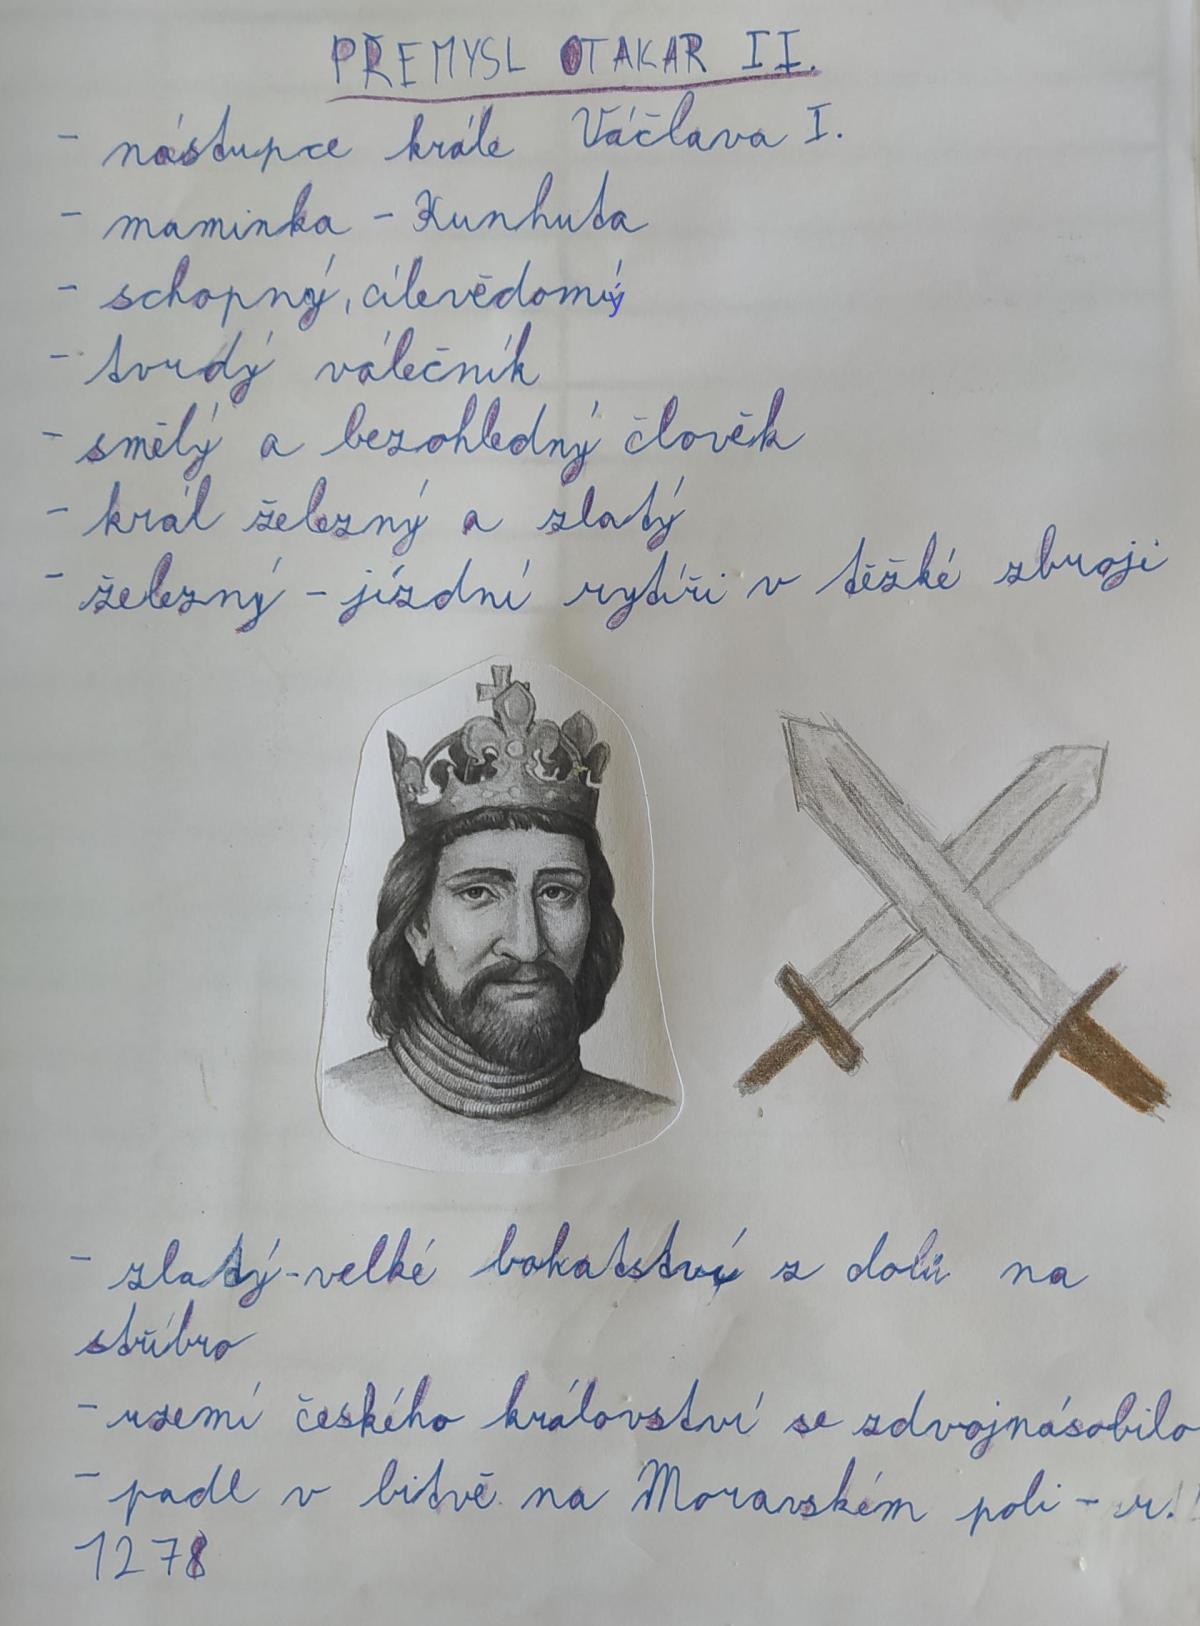 PŘEMYSL OTAKAR II.
- nástupce krále Václava I.
- maminka - Kunhuta
- schopný, cílevědomý
- tvrdý válečník
- smělý a bezohledný člověk
- král železný a zlatý
- železný - jízdní rytíři v těžké zbroji
- zlatý - velké bohatství z dolů na
stříbro
- uzemí českého království se zdvojnásobilo
- padl v bitvě na Moravském poli - r.
1278